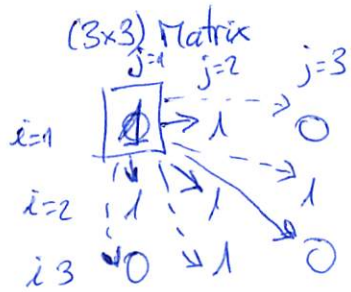 (3x3) Matrix
j=1 j=2 j=3
i=1 1 1 0
i=2 1 1 1
i 3 0 1 0